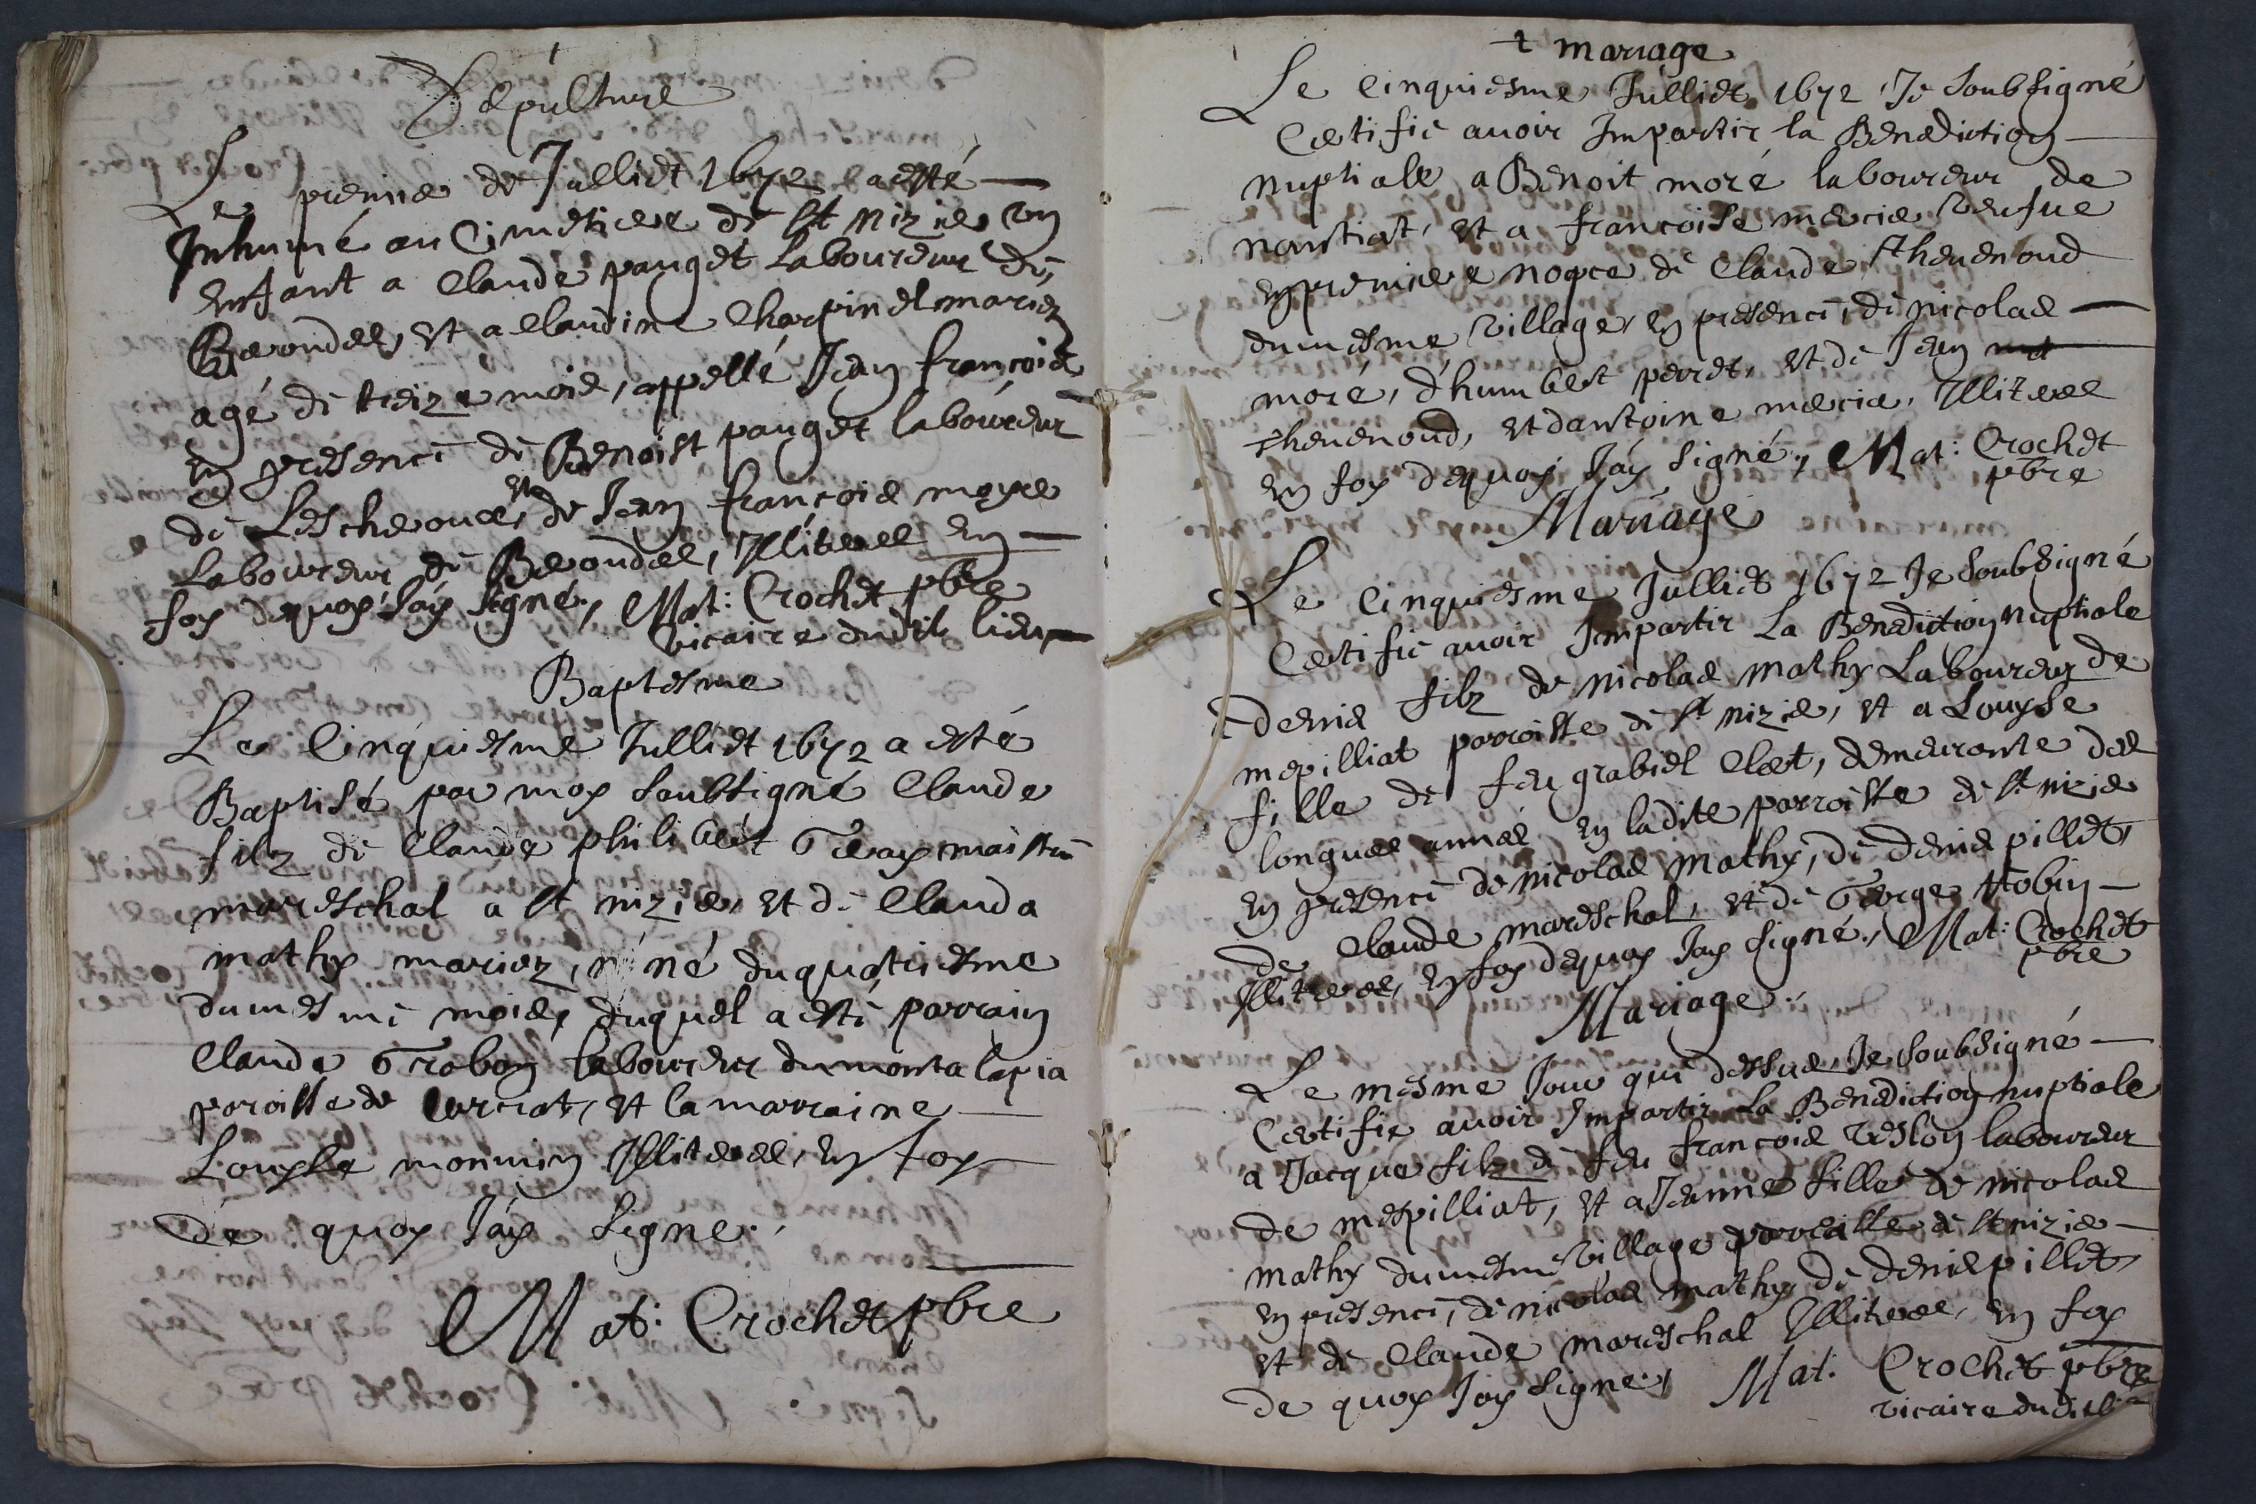 Sepulture
Le premier de Julliet 1672 a esté
Inhumé au Cimetiere de st nizier un
enfant a Claude pauget Laboureur de
Beronder, et a Claudine Charpinel mariez
agé de treize mois, appellé Jean francois
en presence de Benoist pauget laboureur
de Lescheroux, et de Jean françois moyre
Laboureur de Beronder, Illiteres en
foy dequoy Jay signé, Mat: Crochet pbre
vicaire dudit lieu
Baptesme
Le Cinquiesme Julliet 1672 a esté
Baptisé par moy soubsigné Claude
filz de Claude philibert maistre
mareschal a st nizier, et de Clauda
mathy mariez, né du quatriesme
dumesme mois, duquel a esté parrain
Claude Grabon laboureur du montalapia
paroisse de Curciat, et la marraine
Louyse monnin Illiteres, en foy
de quoy Jay signe.
Mat: Crochet pbre
mariage
Le Cinquiesme Julliet 1672 Je soubsigné
Certifie avoir Impartir la Benediction
nuptialle a Benoit moré laboureur de
nantiat, et a francoise mercier veufue
en premiere nopce de Claude Theuenoud
dumesme village, en presence, de nicolas
moré, d'humbert perret, et de Jean
Theuenoud, et dantoine mercier, Illiteres
en foy dequoy Jay signé, Mat: Crochet
pbre
Mariage
Le Cinquiesme Julliet 1672 Je soubsigné
Certifie avoir Impartir La Benediction nuptiale
a denis filz de nicolas mathy Laboureur de
mepilliat parroisse de st nizier, et a Louyse
fille de feu grabiel Clert, demeurante des
longues années en ladite parroisse de st nizier
en presence de nicolas mathy, de denis pillet,
de Claude mareschal, et de George robin
Illiteres, en foy dequoy Jay signé, Mat: Crochet
pbre
Mariage.
Le mesme Jour que dessus Je soubsigné
Certifie avoir Impartir La Benediction nuptiale
a Jacque filz de feu francois veslon laboureur
de mespilliat, et a Jeanne fille de nicolas
mathy dumesme village parroisse de st nizier
en presence, de nicolas mathy de denis pillet
et de Claude mareschal Illiteres, en foy
de quoy Jay signe, Mat: Crochet pbre
vicaire dudit